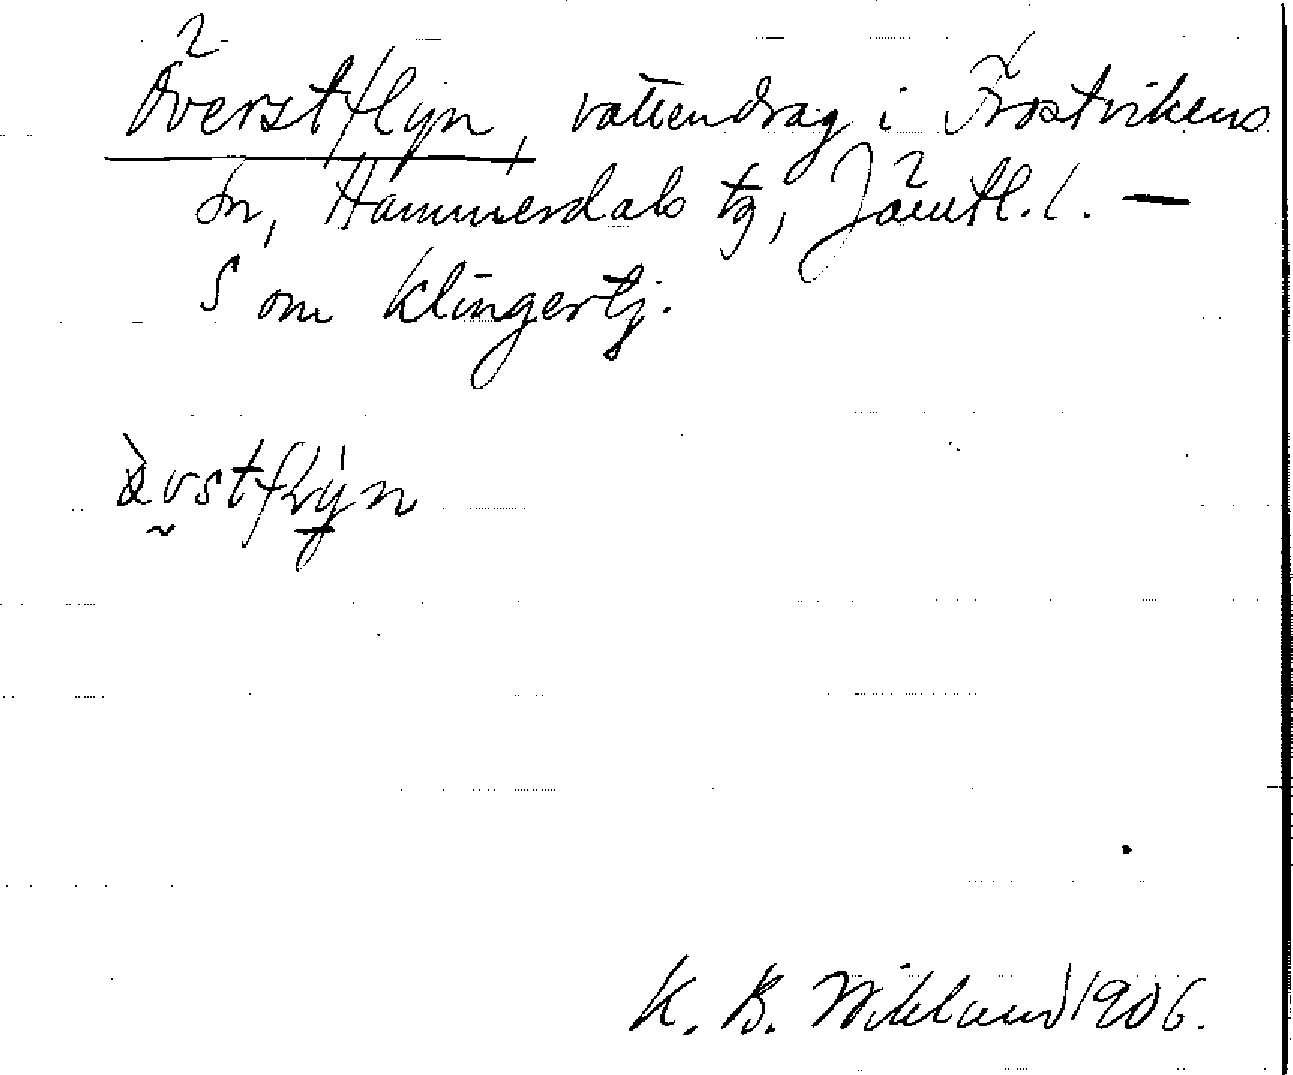 Överstflyn, vattendrag i Frostvikens
sn, Hammerdals tg, Jämtl. l. —
S om Klingertj.
K. B. Wiklund 1906.